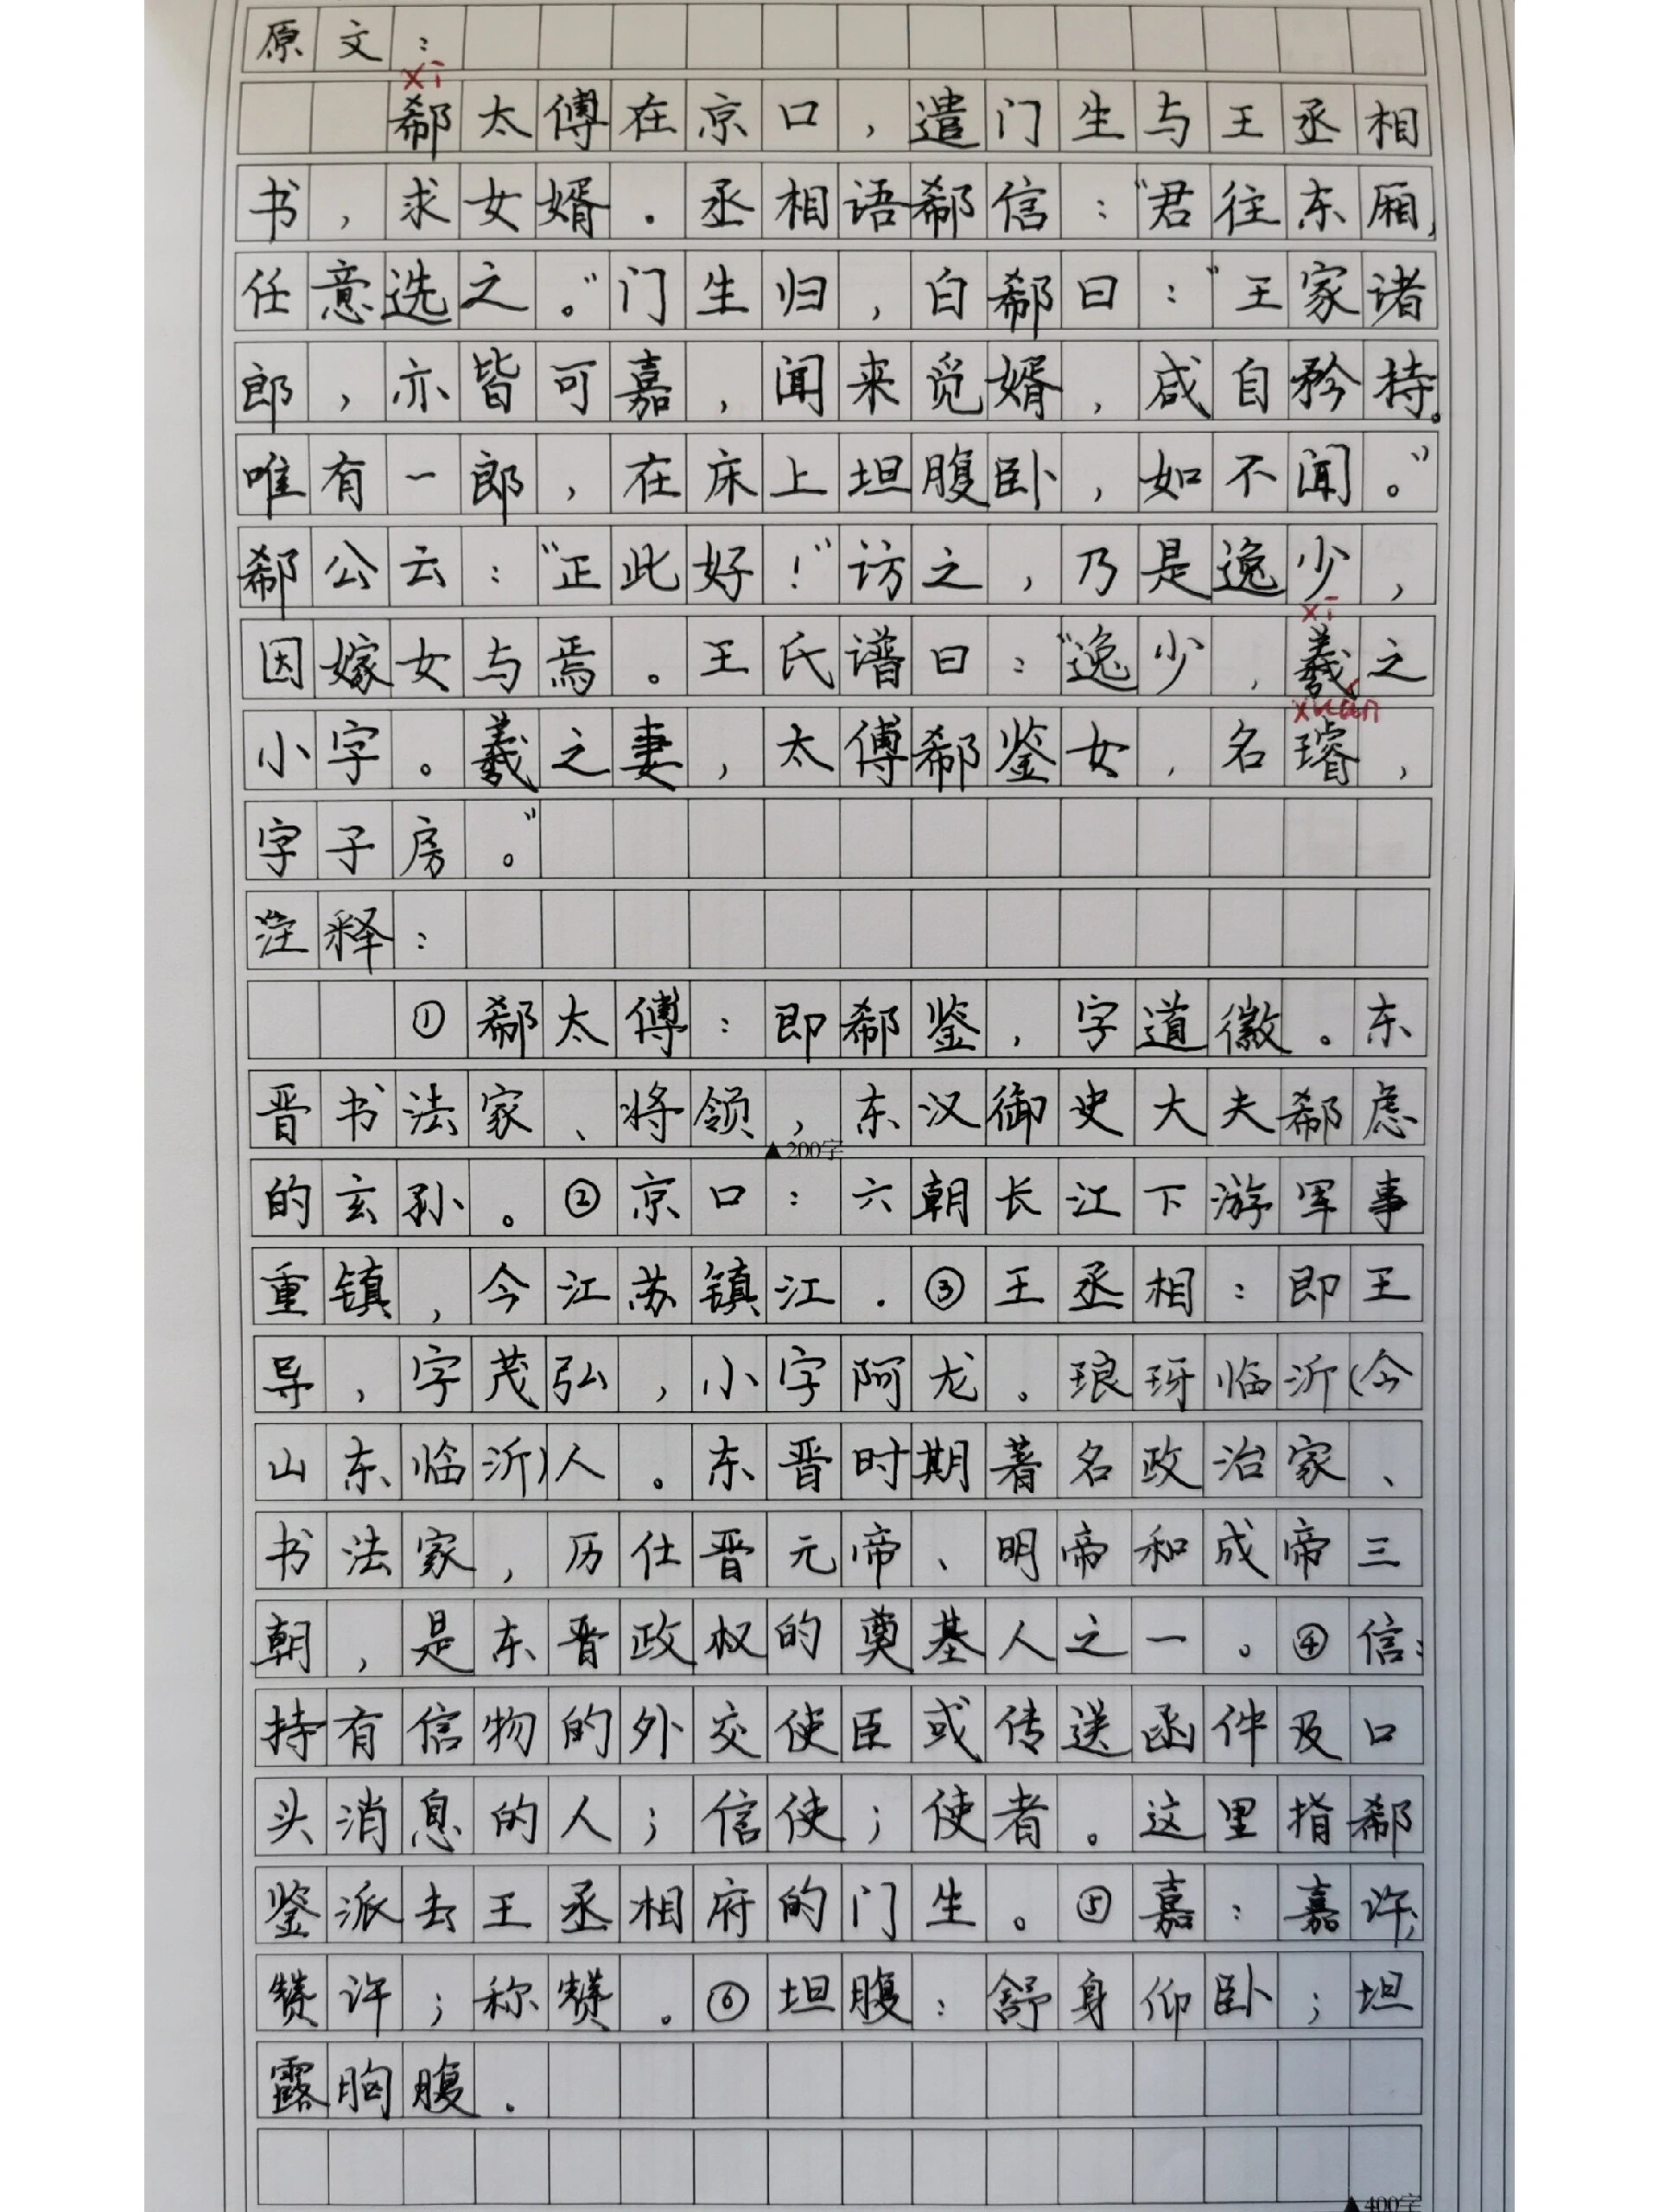 原文：
xī
郗太傅在京口，遣门生与王丞相
书，求女婿。丞相语郗信：“君往东厢，
任意选之。”门生归，白郗曰：“王家诸
郎，亦皆可嘉，闻来觅婿，咸自矜持。
唯有一郎，在床上坦腹卧，如不闻。”
郗公云：“正此好！”访之，乃是逸少，
xī
因嫁女与焉。王氏谱曰：“逸少，羲之
xuán
小字。羲之妻，太傅郗鉴女，名璿，
字子房。”
注释：
①郗太傅：即郗鉴，字道徽。东
晋书法家、将领，东汉御史大夫郗虑
▲200字
的玄孙。②京口：六朝长江下游军事
重镇，今江苏镇江．③王丞相：即王
导，字茂弘，小字阿龙。琅玡临沂（今
山东临沂）人。东晋时期著名政治家、
书法家，历仕晋元帝、明帝和成帝三
朝，是东晋政权的奠基人之一。④信：
持有信物的外交使臣或传送函件及口
头消息的人；信使；使者。这里指郗
鉴派去王丞相府的门生。⑤嘉：嘉许；
赞许；称赞．⑥坦腹：舒身仰卧；坦
露胸腹．
▲400字